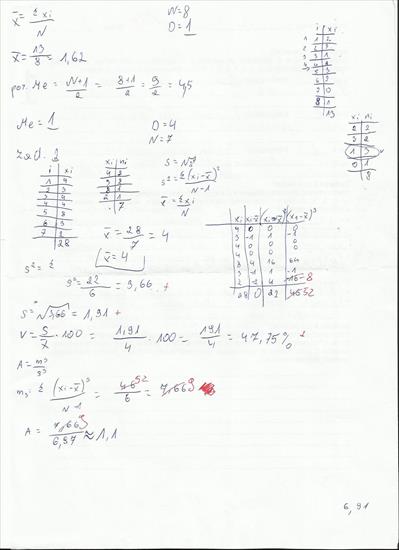 x̄ = Σxi / N    N = 8
D = 1
x̄ = 13/8 = 1,62
poz. Me = N+1/2 = 8+1/2 = 9/2 = 4,5
Me = 1    D = 4
N = 7
i | xi
1 | 2
2 | 3
3 | 1
8 | 1
13
xi | ni
2 | 2
3 | 2
1 | 3
0 | 1
8
zad. 1
i | xi
1 | 4
2 | 3
3 | 4
4 | 4
5 | 8
6 | 3
7 | 2
28
xi | ni
4 | 2
3 | 2
8 | 1
2 | 1
7
s = √s²
s² = Σ(xi-x̄)² / N-1
x̄ = Σxi / N
x̄ = 28/7 = 4
x̄ = 4
xi | xi-x̄ | (xi-x̄)² | (xi-x̄)³
4 | 0 | 0 | 0
3 | -1 | 1 | -1
4 | 0 | 0 | 0
4 | 0 | 0 | 0
8 | 4 | 16 | 64
3 | -1 | 1 | -1
2 | -2 | 4 | -16 -8
28 | 0 | 22 | 46 52
s² = Σ
s² = 22/6 = 3,66 +
s = √3,66 = 1,91 +
V = s/x̄ · 100 = 1,91/4 · 100 = 191/4 = 47,75% +
A = m³/s³
m₃ = Σ(xi-x̄)³ / N-1 = 46 52/6 = 7,66 9
A = 7,66 9/6,97 ≈ 1,1
6,91